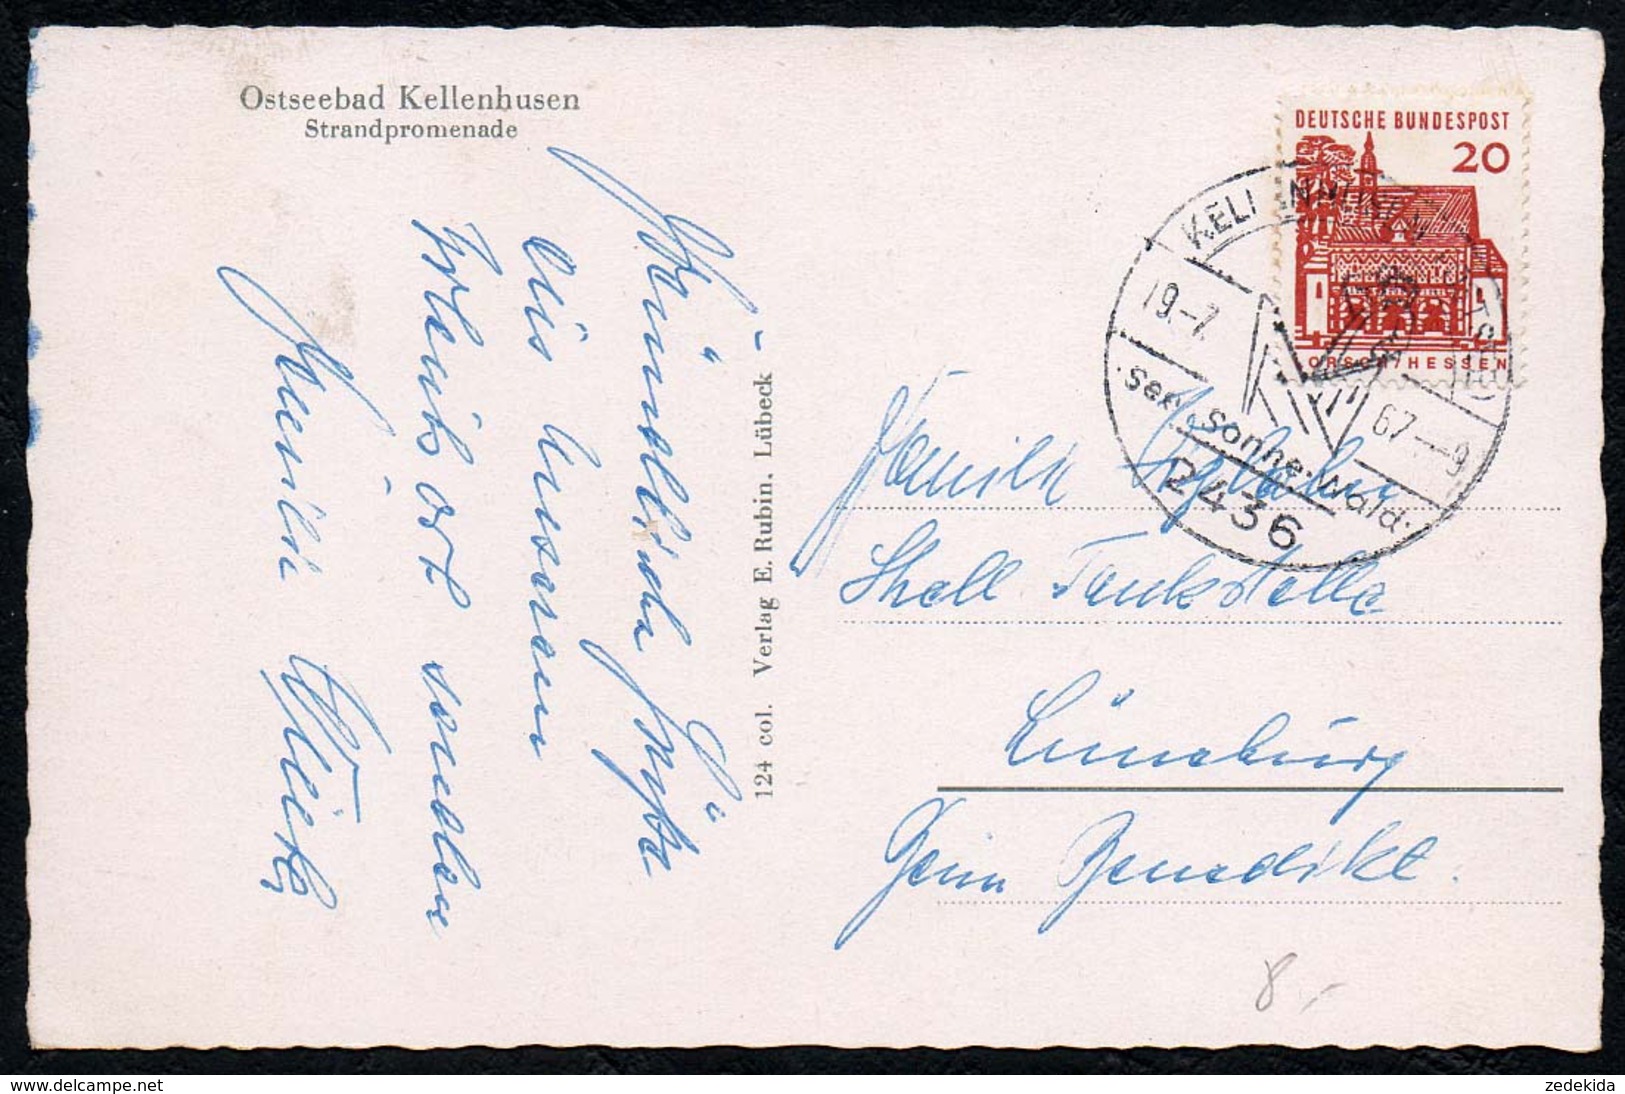 Ostseebad Kellenhusen
Strandpromenade
Freundliche Grüße
aus unserem
Urlaubsort senden
Familie
124 col. Verlag E. Rubin, Lübeck
DEUTSCHE BUNDESPOST
20
LORSCH/HESSEN
KELLENHUSEN
19.-7.
67.--9
See. Sonne. Wald.
2436
Familie
Shell Tankstelle
Lüneburg
Beim Benedikt.
8,-
www.delcampe.net
zedekida